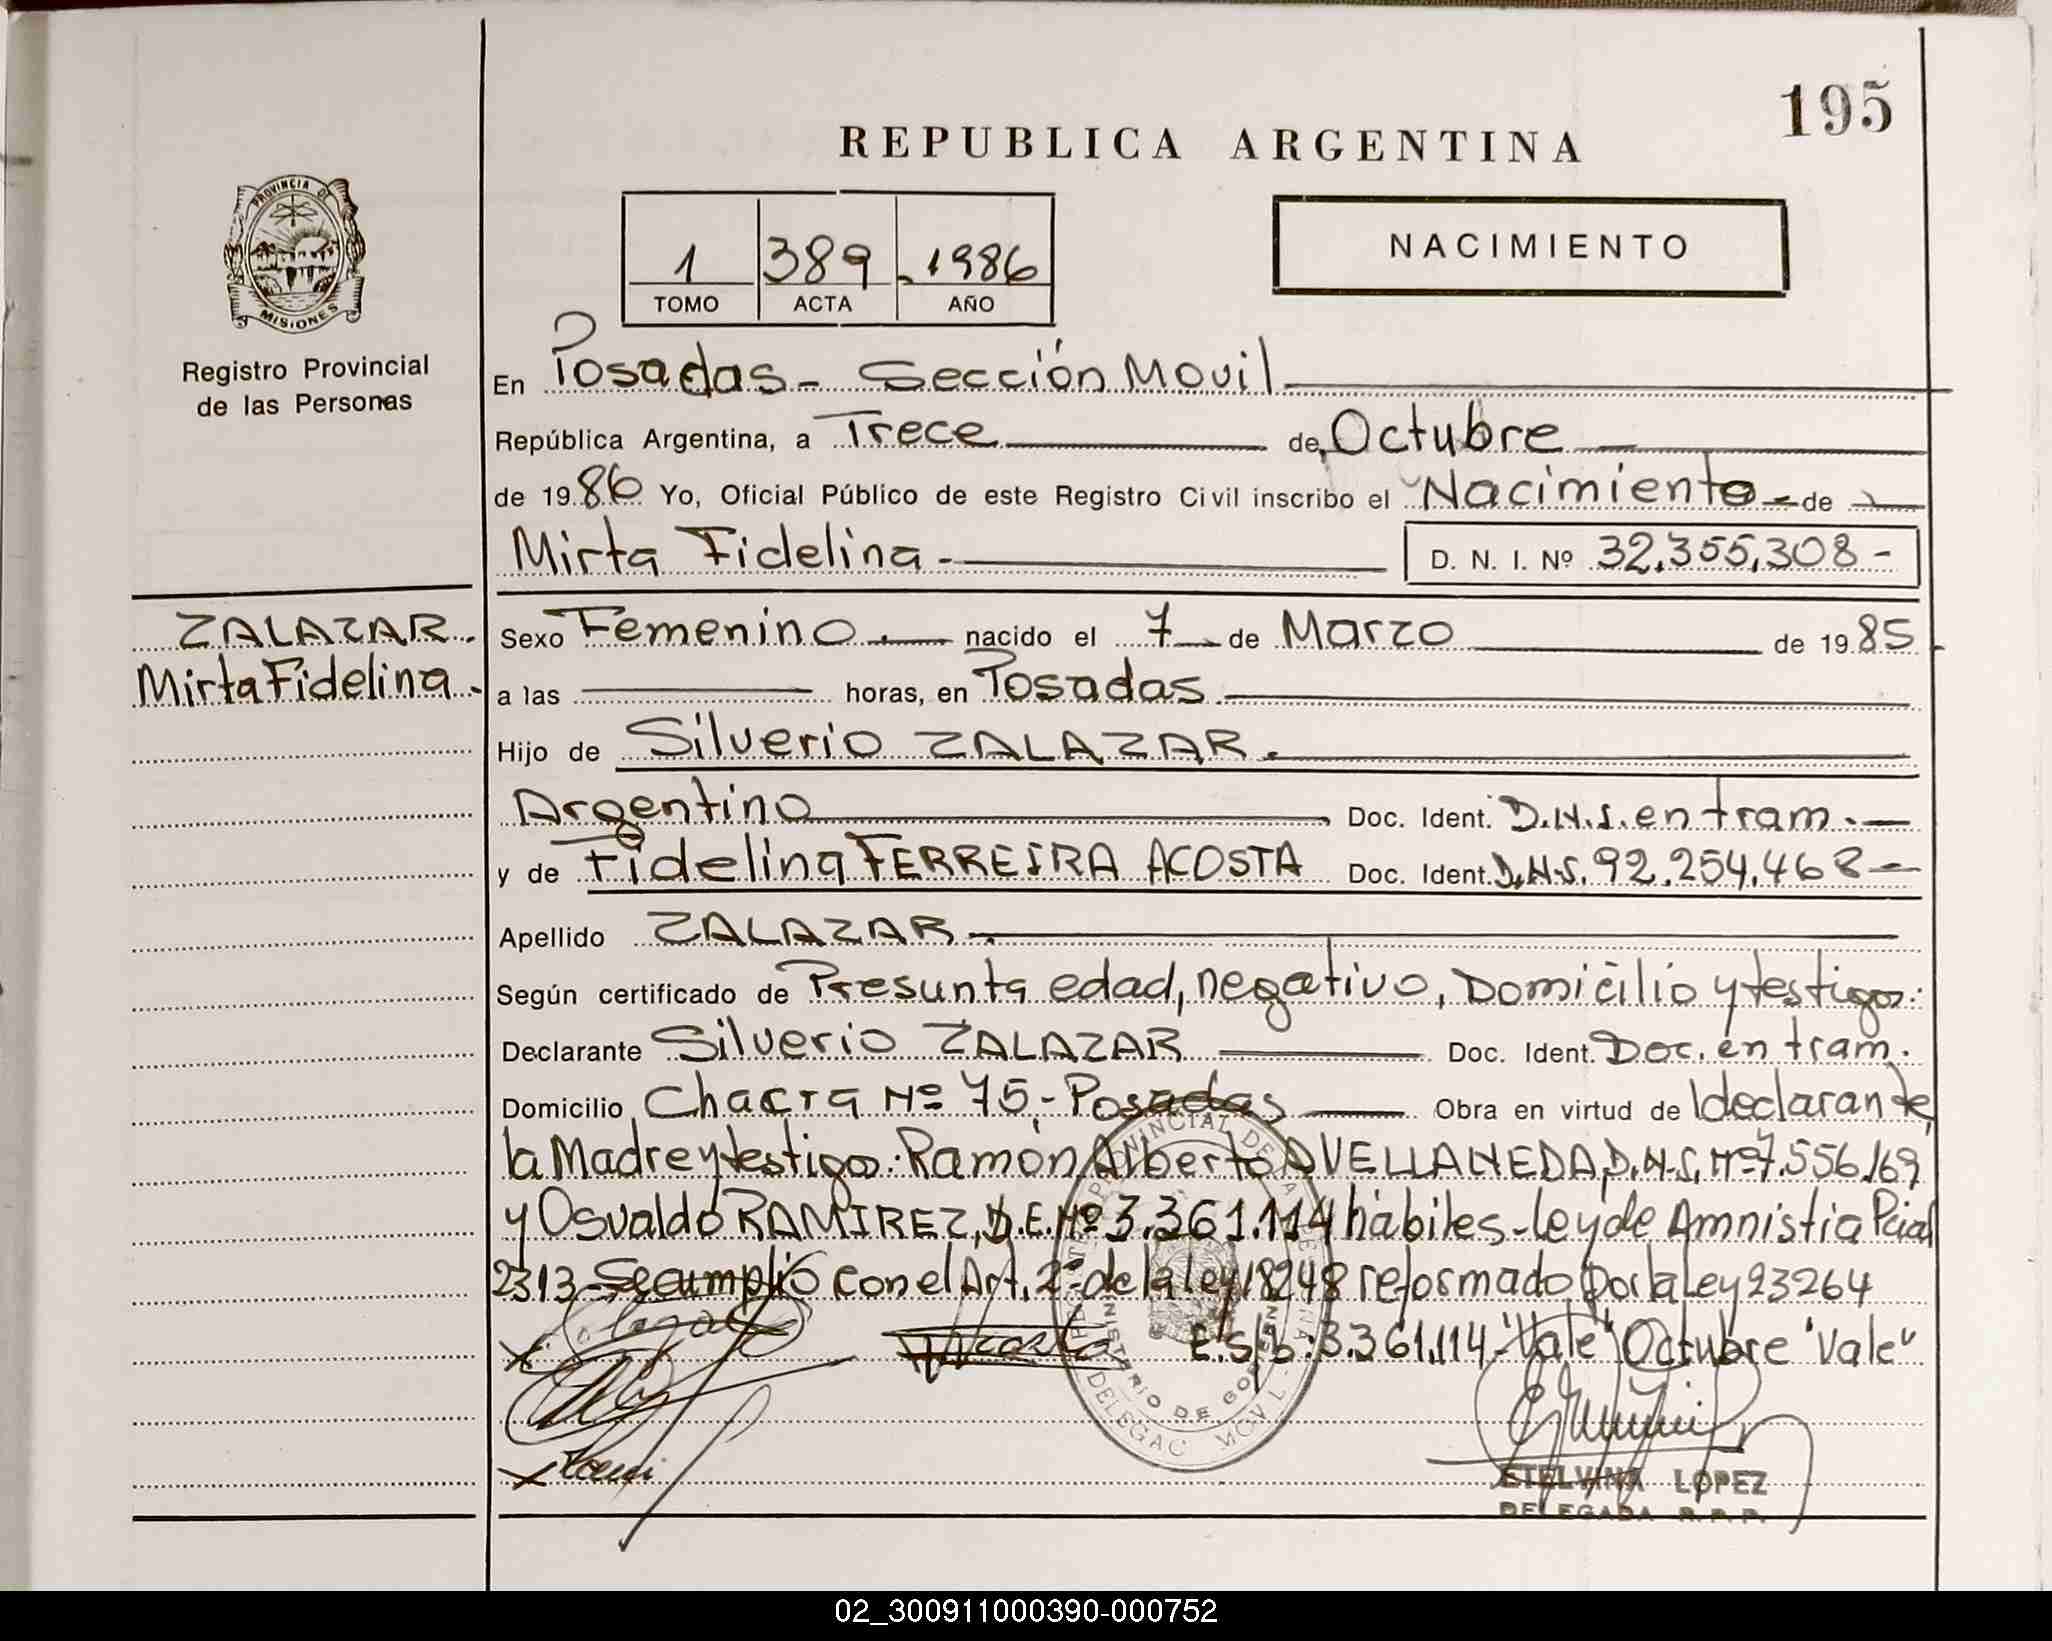 195
REPUBLICA ARGENTINA
PROVINCIA DE
MISIONES
Registro Provincial
de las Personas
1 389 1986
TOMO ACTA AÑO
NACIMIENTO
En Posadas - Sección Movil
República Argentina, a Trece de Octubre
de 1986 Yo, Oficial Público de este Registro Civil inscribo el Nacimiento - de
Mirta Fidelina - D. N. I. Nº 32.355.308 -
ZALAZAR
Mirta Fidelina -
Sexo Femenino. nacido el 7 de Marzo de 1985
a las horas, en Posadas
Hijo de Silverio ZALAZAR.
Argentino Doc. Ident. D.N.I. en tram.
y de Fidelina FERREIRA ACOSTA Doc. Ident. D.N.I. 92.254.468
Apellido ZALAZAR
Según certificado de Presunta edad, negativo, Domicilio y testigos:
Declarante Silverio ZALAZAR Doc. Ident. Doc. en tram.
Domicilio Chacra Nº 75 - Posadas Obra en virtud de l declarante,
la Madre y testigos: Ramón Alberto AVELLANEDA, D.N.I. Nº 7.556.169
y Osvaldo RAMIREZ, D.E. Nº 3.361.114 hábiles - ley de Amnistia Pcial
2313 - Se cumplió con el Art. 2º de la ley 18248 reformado por la Ley 23264
E/s/b: 3.361.114 "Vale" Octubre "Vale"
DELEGAC MOVIL
MINISTERIO DE GOBIERNO
STELVINA LOPEZ
DELEGADA R.P.P.
02_300911000390-000752